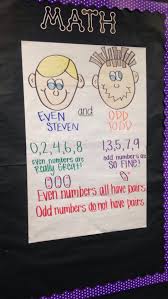 MATH
EVEN and ODD
STEVEN TODD
0,2,4,6,8 1,3,5,7,9
even numbers are odd numbers are
REALLY GREAT! SO FINE!
Even numbers all have pairs
Odd numbers do not have pairs